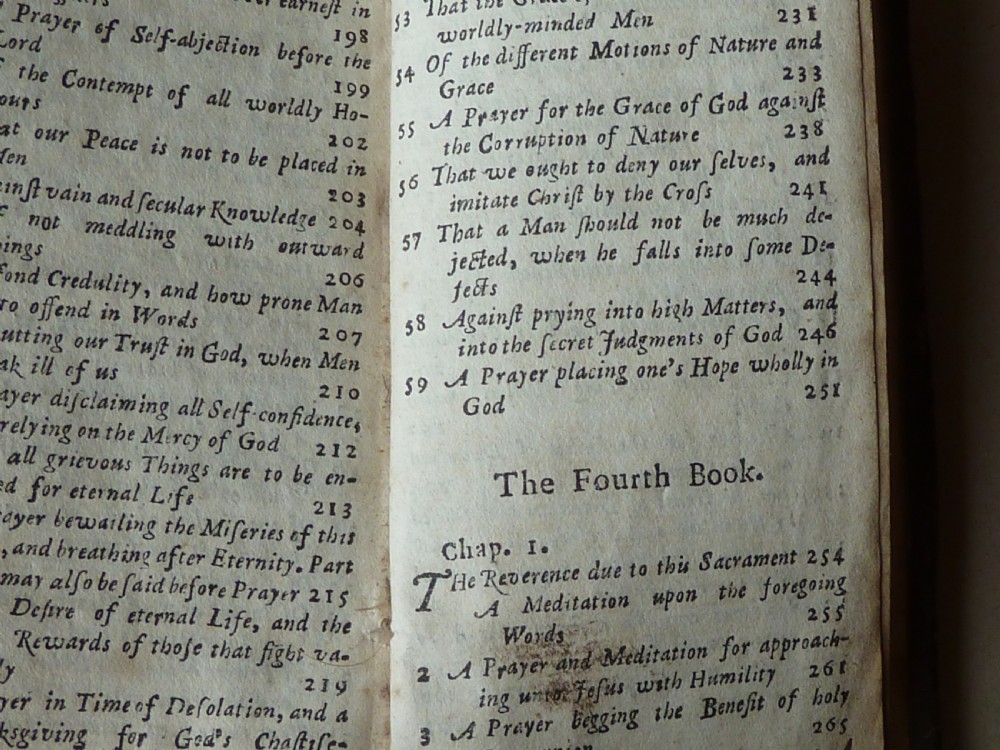 earneſt in
198
Prayer of Self-abjection before the
Lord
199
the Contempt of all worldly Ho-
202
at our Peace is not to be placed in
203
vain and ſecular Knowledge 204
not meddling with outward
206
fond Credulity, and how prone Man
to offend in Words
207
utting our Truſt in God, when Men
ak ill of us
210
ayer diſclaiming all Self-confidence,
relying on the Mercy of God 212
all grievous Things are to be en-
ed for eternal Life
213
rayer bewailing the Miſeries of this
, and breathing after Eternity. Part
may alſo be ſaid before Prayer 215
Deſire of eternal Life, and the
Rewards of thoſe that fight va-
ly
219
yer in Time of Deſolation, and a
ksgiving for God's Chaſtiſe-
53 That the Grace of
worldly-minded Men 231
54 Of the different Motions of Nature and
Grace 233
55 A Prayer for the Grace of God againſt
the Corruption of Nature 238
56 That we ought to deny our ſelves, and
imitate Chriſt by the Croſs 241
57 That a Man ſhould not be much de-
jected, when he falls into ſome De-
fects 244
58 Againſt prying into high Matters, and
into the ſecret Judgments of God 246
59 A Prayer placing one's Hope wholly in
God 251
The Fourth Book.
Chap. 1.
THe Reverence due to this Sacrament 254
A Meditation upon the foregoing
Words 255
2 A Prayer and Meditation for approach-
ing unto Jeſus with Humility 261
3 A Prayer begging the Benefit of holy
265